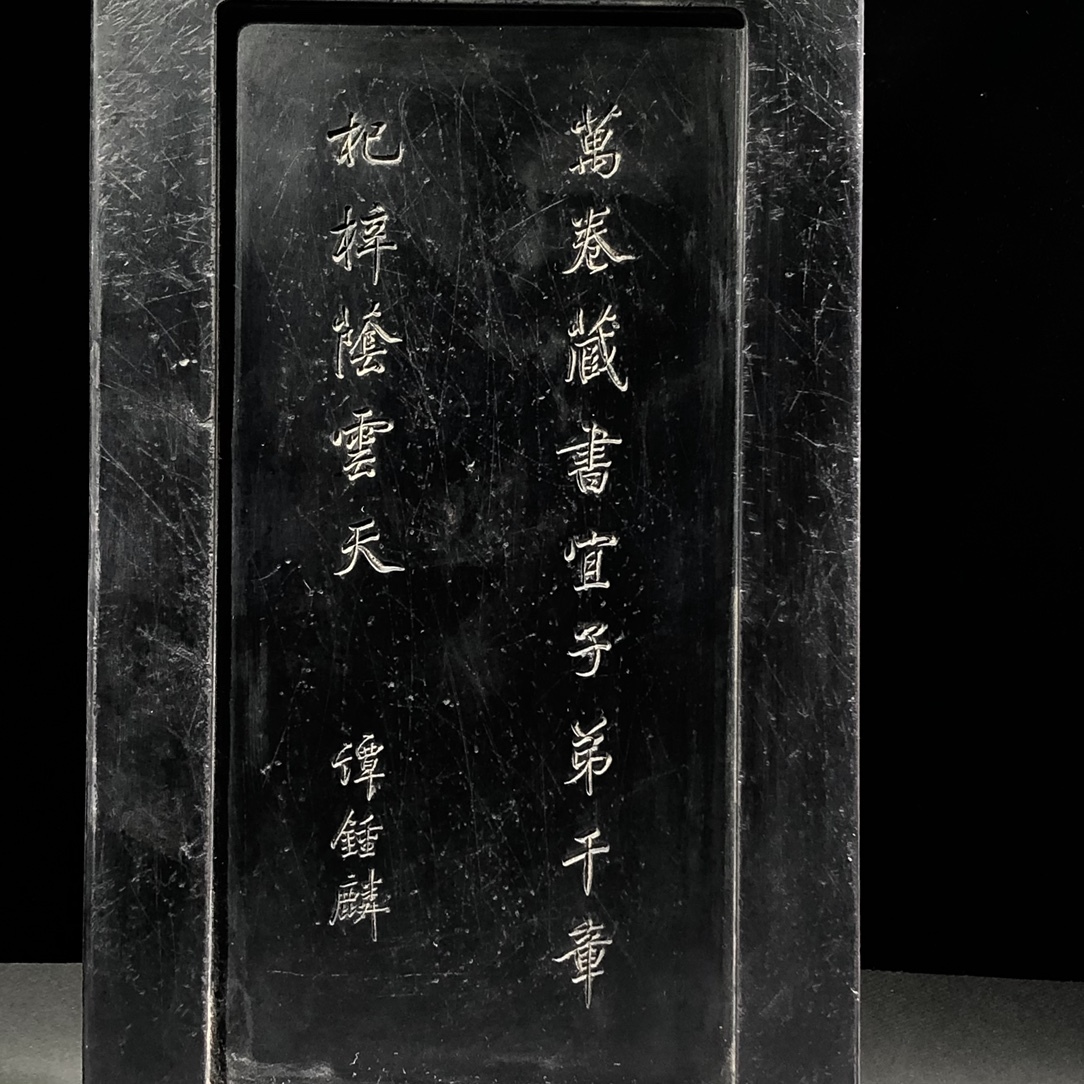 萬卷藏書宜子弟千章
杞梓蔭雲天 譚鍾麟